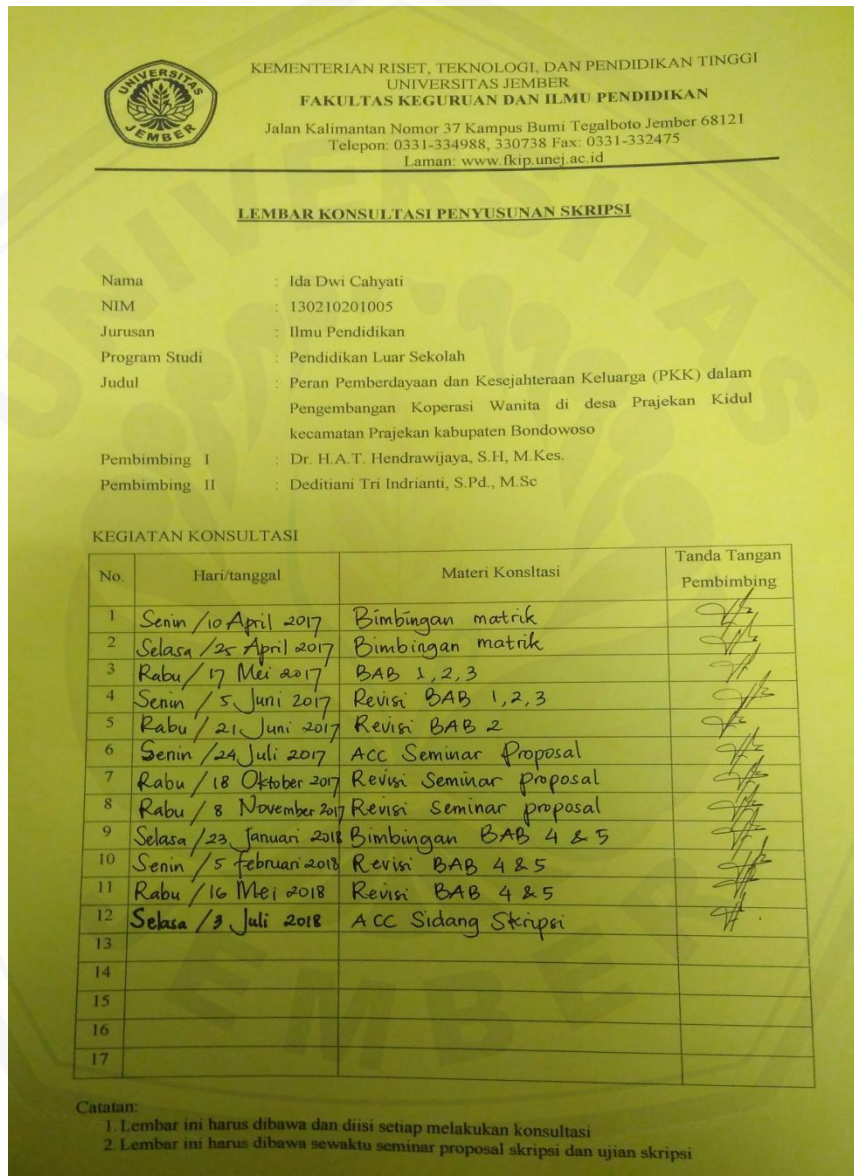 UNIVERSITAS JEMBER
KEMENTERIAN RISET, TEKNOLOGI, DAN PENDIDIKAN TINGGI
UNIVERSITAS JEMBER
FAKULTAS KEGURUAN DAN ILMU PENDIDIKAN
Jalan Kalimantan Nomor 37 Kampus Bumi Tegalboto Jember 68121
Telepon: 0331-334988, 330738 Fax: 0331-332475
Laman: www.fkip.unej.ac.id
LEMBAR KONSULTASI PENYUSUNAN SKRIPSI
Nama : Ida Dwi Cahyati
NIM : 130210201005
Jurusan : Ilmu Pendidikan
Program Studi : Pendidikan Luar Sekolah
Judul : Peran Pemberdayaan dan Kesejahteraan Keluarga (PKK) dalam
Pengembangan Koperasi Wanita di desa Prajekan Kidul
kecamatan Prajekan kabupaten Bondowoso
Pembimbing I : Dr. H.A.T. Hendrawijaya, S.H, M.Kes.
Pembimbing II : Deditiani Tri Indrianti, S.Pd., M.Sc
KEGIATAN KONSULTASI
No. Hari/tanggal Materi Konsltasi Tanda Tangan
Pembimbing
1 Senin /10 April 2017 Bimbingan matrik
2 Selasa /25 April 2017 Bimbingan matrik
3 Rabu / 17 Mei 2017 BAB 1, 2, 3
4 Senin / 5 Juni 2017 Revisi BAB 1, 2, 3
5 Rabu / 21 Juni 2017 Revisi BAB 2
6 Senin /24 Juli 2017 ACC Seminar Proposal
7 Rabu / 18 Oktober 2017 Revisi Seminar proposal
8 Rabu / 8 November 2017 Revisi Seminar proposal
9 Selasa /23 Januari 2018 Bimbingan BAB 4 & 5
10 Senin /5 februari 2018 Revisi BAB 4 & 5
11 Rabu / 16 Mei 2018 Revisi BAB 4 & 5
12 Selasa /3 Juli 2018 ACC Sidang Skripsi
13
14
15
16
17
Catatan:
1. Lembar ini harus dibawa dan diisi setiap melakukan konsultasi
2. Lembar ini harus dibawa sewaktu seminar proposal skripsi dan ujian skripsi